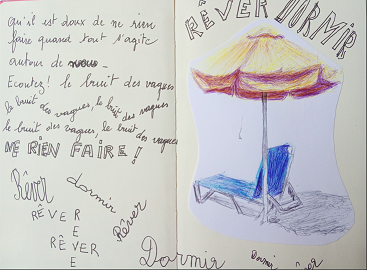 Qu'il est doux de ne rien
faire quand tout s'agite
autour de nous -
Ecoutez! le bruit des vagues
le bruit des vagues, le bruit des vagues
le bruit des vagues, le bruit des vagues
NE RIEN FAIRE!
Rêver
dormir
Rêver
RÊVER
E
RÊVER
E
Dormir
RÊVER DORMIR
Dormir
rêver